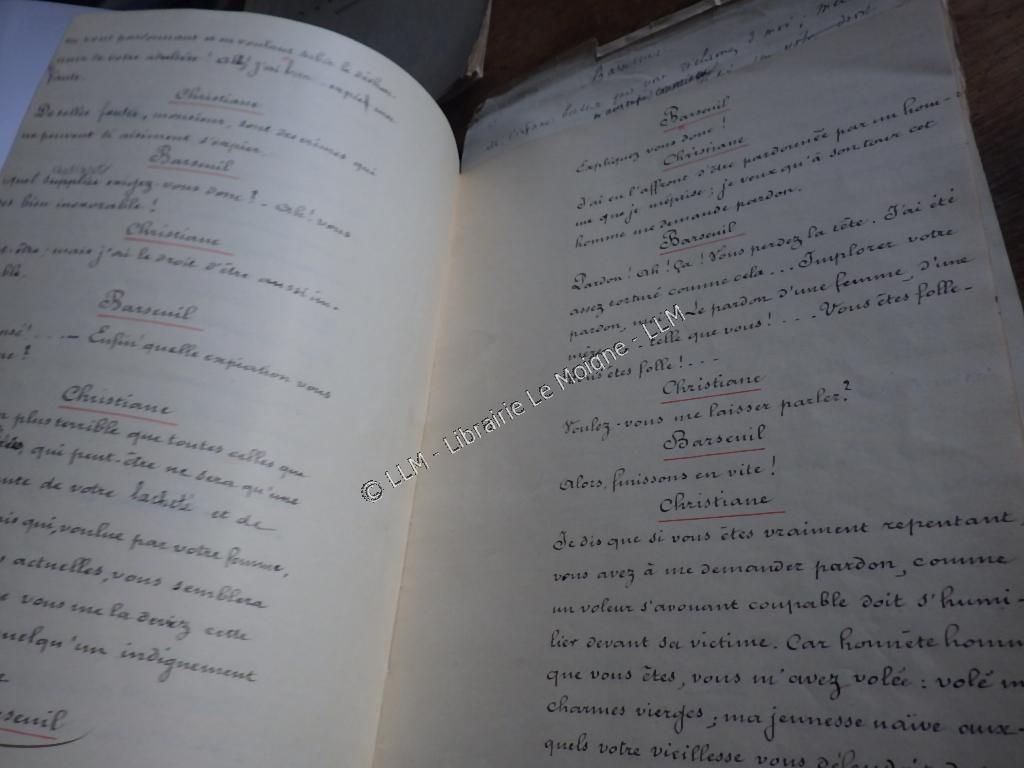 en vous pardonnant et en voulant subir le déshon-
neur de votre adultère ! Ah ! j'ai bien expié une
faute.
Christiane
De telles fautes, monsieur, sont des crimes qui
ne peuvent si aisément s'expier.
Barseuil
Quel supplice exigez-vous donc ? - Ah ! vous
êtes bien inexorable !
Christiane
-être ; mais j'ai le droit d'être aussi im-
Barseuil
! . . . - Enfin quelle expiation vous
Christiane
plus terrible que toutes celles que
qui peut-être ne sera qu'une
de votre lâcheté et de
qui, voulue par votre femme,
actuelles, vous semblera
vous me la devez cette
quelqu'un indignement
Barseuil
Barseuil
Expliquez vous donc !
Christiane
J'ai eu l'affront d'être pardonnée par un hom-
me que je méprise ; je veux qu'à son tour cet
homme me demande pardon.
Barseuil
Pardon ! Ah ! Ça ! Vous perdez la tête. J'ai été
assez torturé comme cela . . . Implorer votre
pardon, Le pardon d'une femme, d'une
telle que vous ! . . . . Vous êtes folle-
Vous êtes folle ! . . .
Christiane
Voulez-vous me laisser parler ?
Barseuil
Alors, finissons en vite !
Christiane
Je dis que si vous êtes vraiment repentant,
vous avez à me demander pardon, comme
un voleur s'avouant coupable doit s'humi-
lier devant sa victime. Car honnête homm
que vous êtes, vous m'avez volée : volé m
charmes vierges, ma jeunesse naïve aux-
quels votre vieillesse vous
© LLM - Librairie Le Moigne - LLM